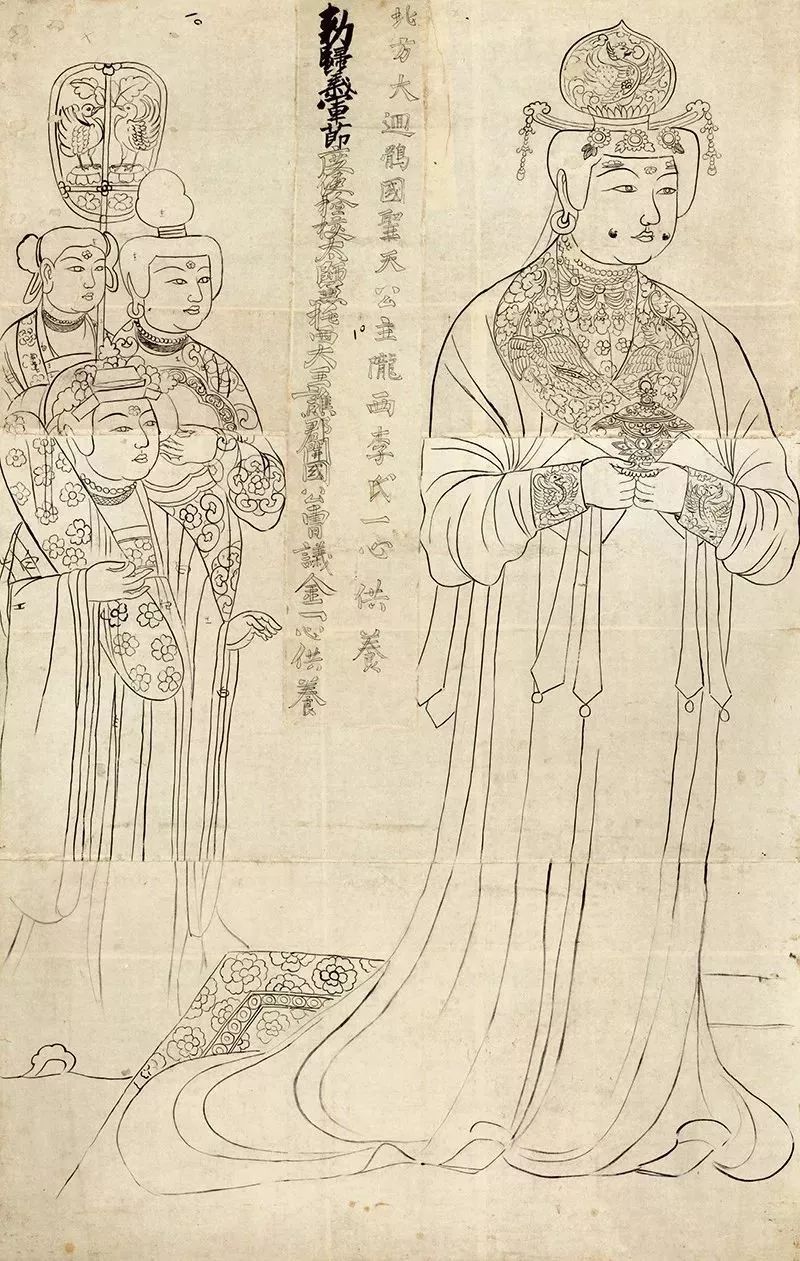 北方大迴鶻國聖天公主隴西李氏一心供養
勅歸義軍節度使撿挍太師兼托西大王譙郡開國公曹議金一心供養